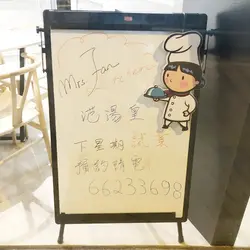 Mrs Fan
港湯金
下星期試業
預約請電
66233698